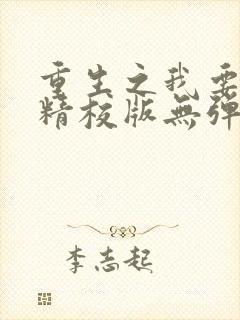 重生之我要
精校版無彈
李志起